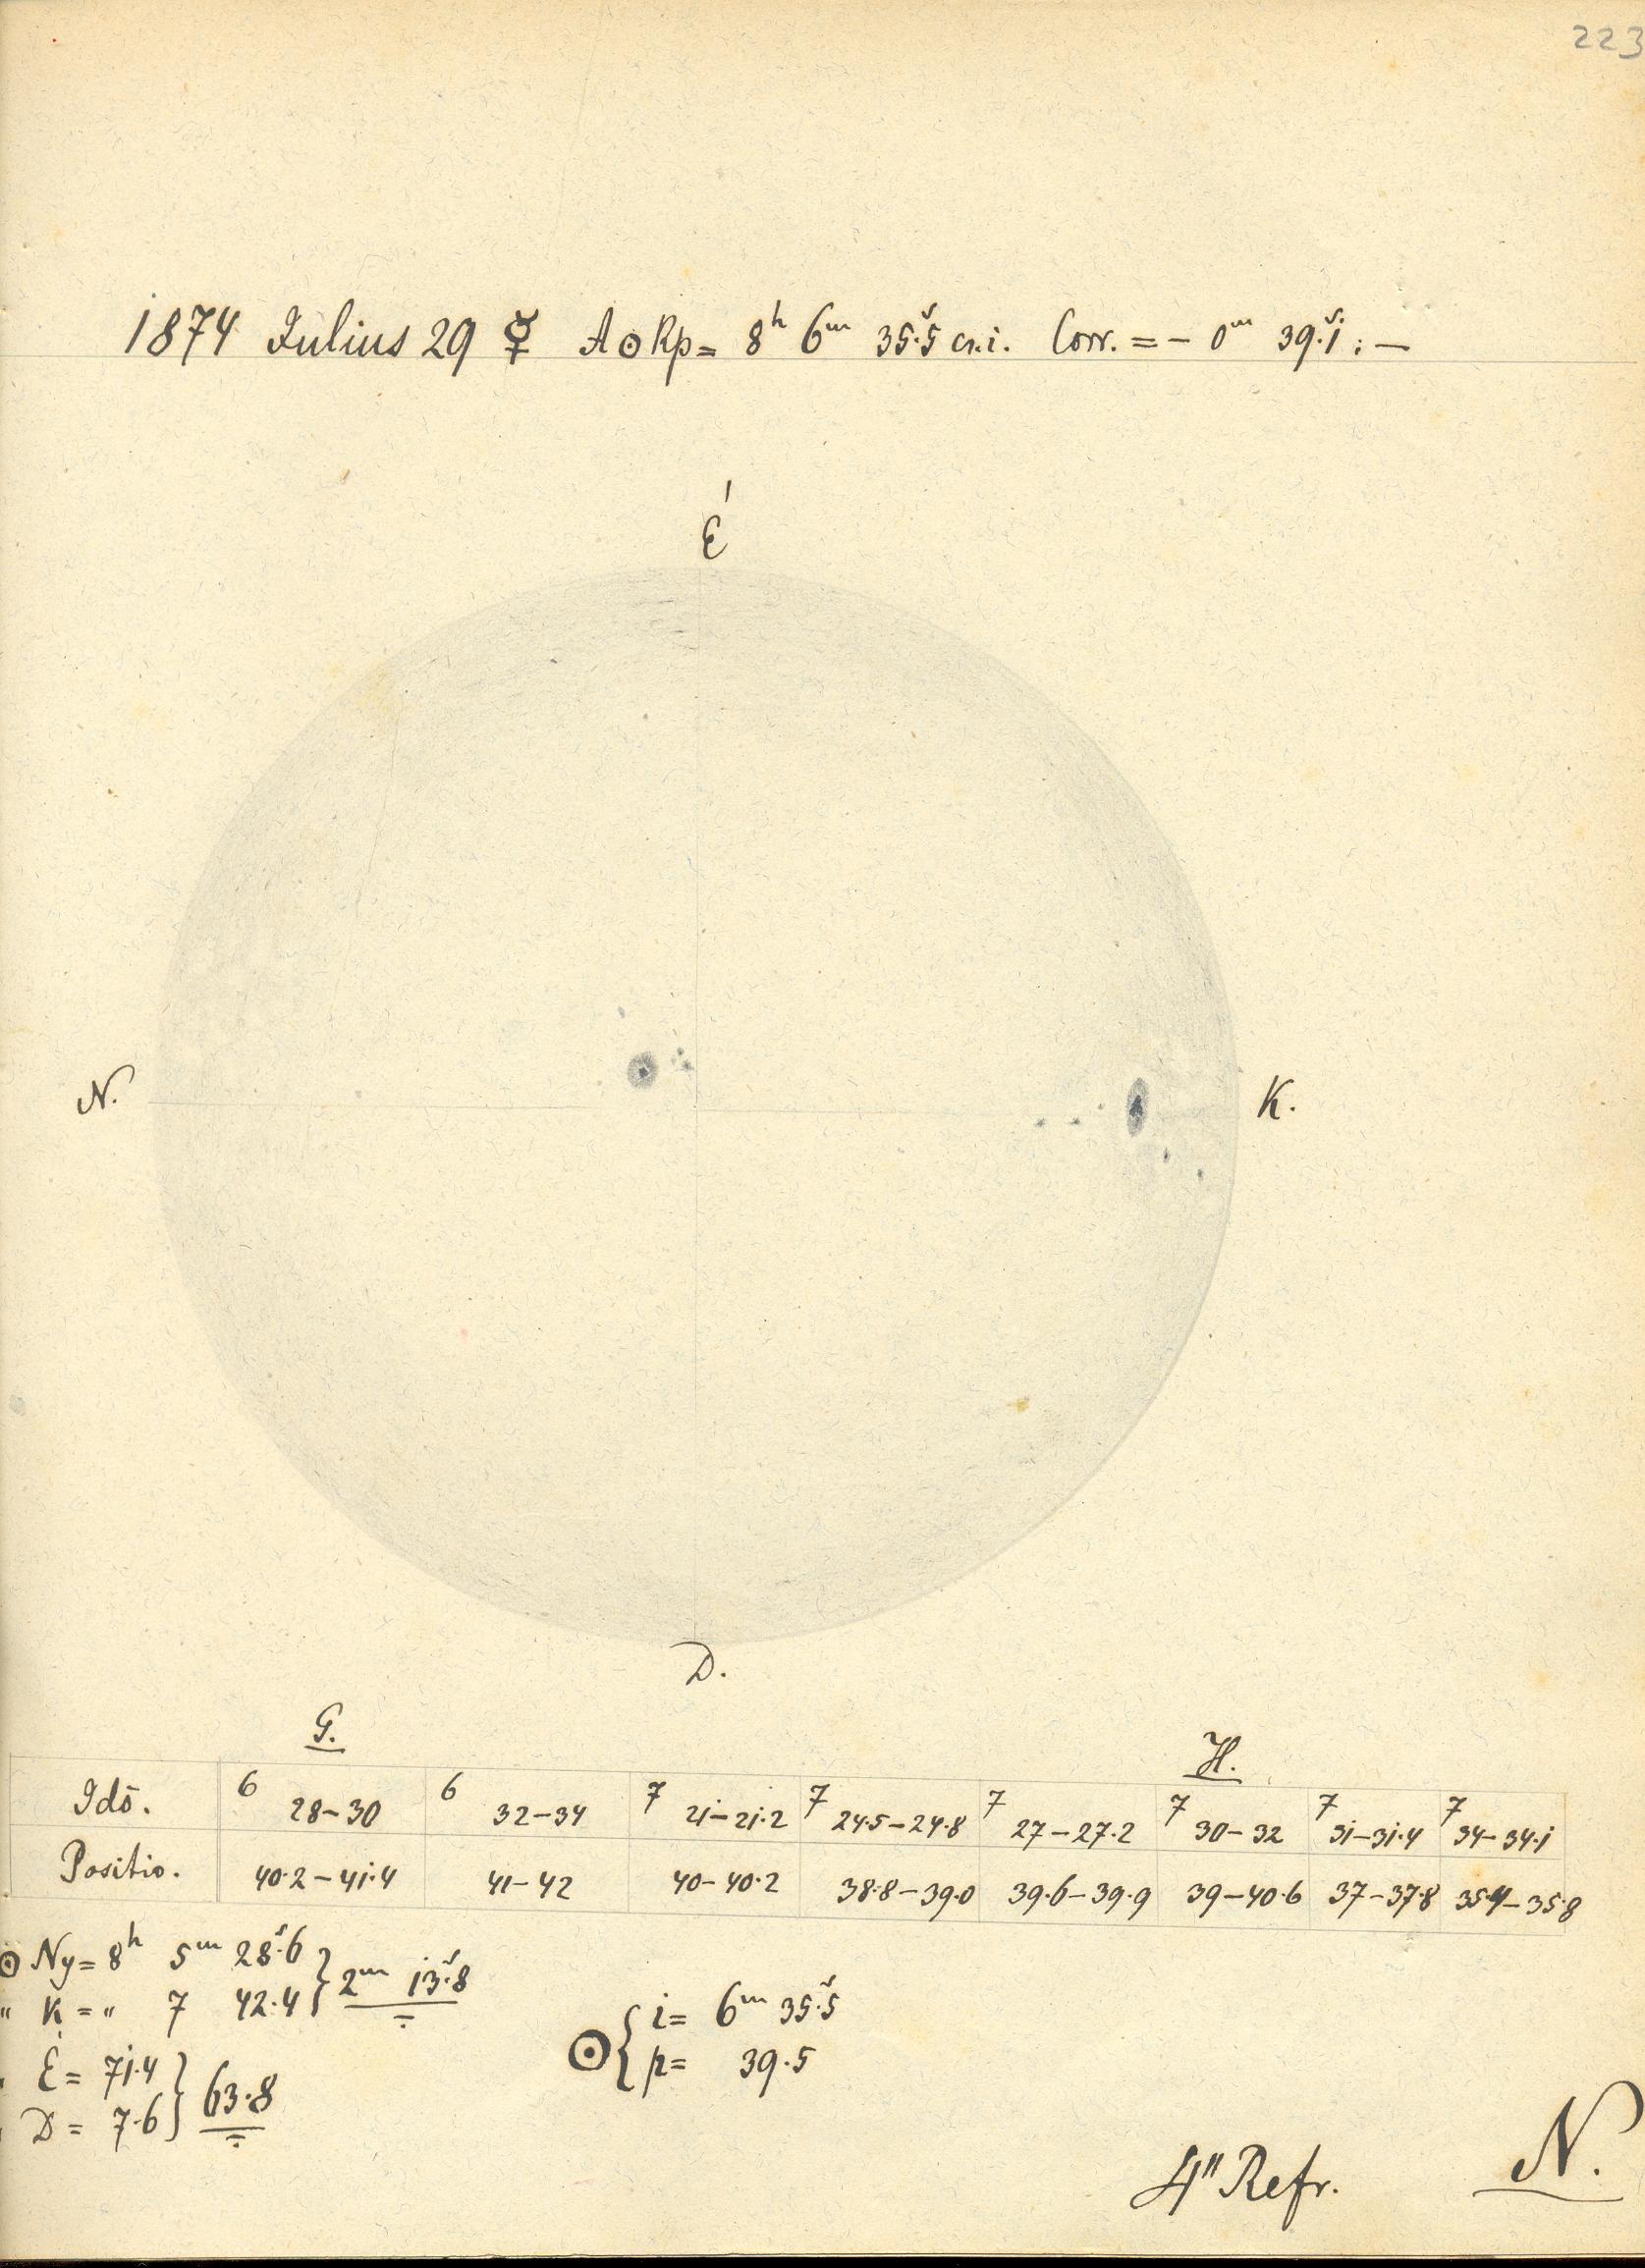 223
1874 Julius 29 ☿ A☉Rp = 8ʰ 6ᵐ 35ˢ.5 cr.i. Corr. = – 0ᵐ 39ˢ.1 : —
É
N. K.
D.
G. H.
Idő. 6 28–30 6 32–34 7 21–21.2 7 24.5–24.8 7 27–27.2 7 30–32 7 31–31.4 7 34–34.1
Positio. 40.2–41.4 41–42 40–40.2 38.8–39.0 39.6–39.9 39–40.6 37–37.8 35.4–35.8
☉ Ny = 8ʰ 5ᵐ 28ˢ.6 } 2ᵐ 13ˢ.8
" K = " 7 42.4
É = 71.4 } 63.8
D = 7.6
☉ { i = 6ᵐ 35ˢ.5
p = 39.5
4" Refr. N.